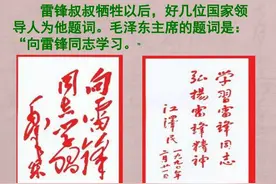 雷锋叔叔牺牲以后，好几位国家领
导人为他题词。毛泽东主席的题词是：
“向雷锋同志学习。
向雷锋
同志学习
毛泽东
学习雷锋同志
弘扬雷锋精神
江泽民
一九九〇年